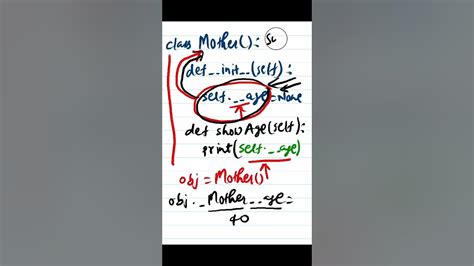 class Mother(): Su
def __init__(self):
self.__age=None
def showAge(self):
print(self.__age)
obj = Mother()
obj._Mother__age=
40